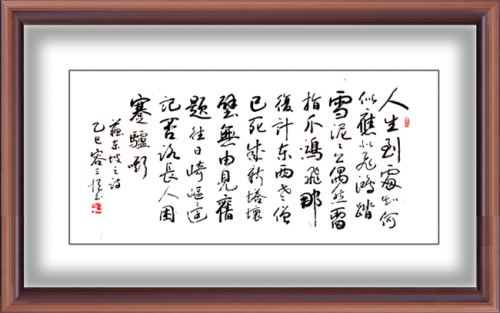 人生到處知何
似應似飛鴻踏
雪泥々上偶然留
指爪鴻飛那
復計東西老僧
已死成新塔壞
壁無由見舊
題往日崎嶇還
記否路長人困
蹇驢嘶
蘇東坡之詩
乙巳